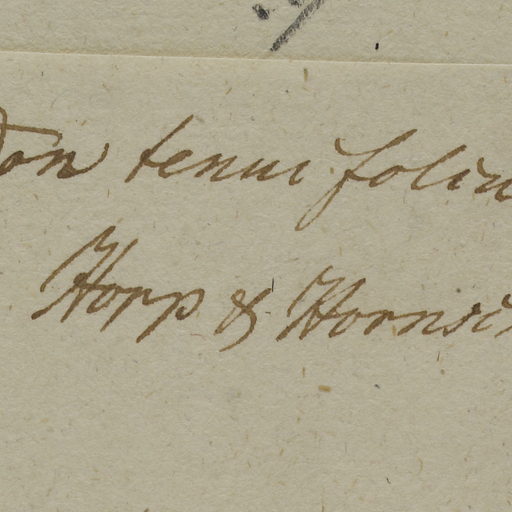 on tenui foliu
Hopp & Hornsc